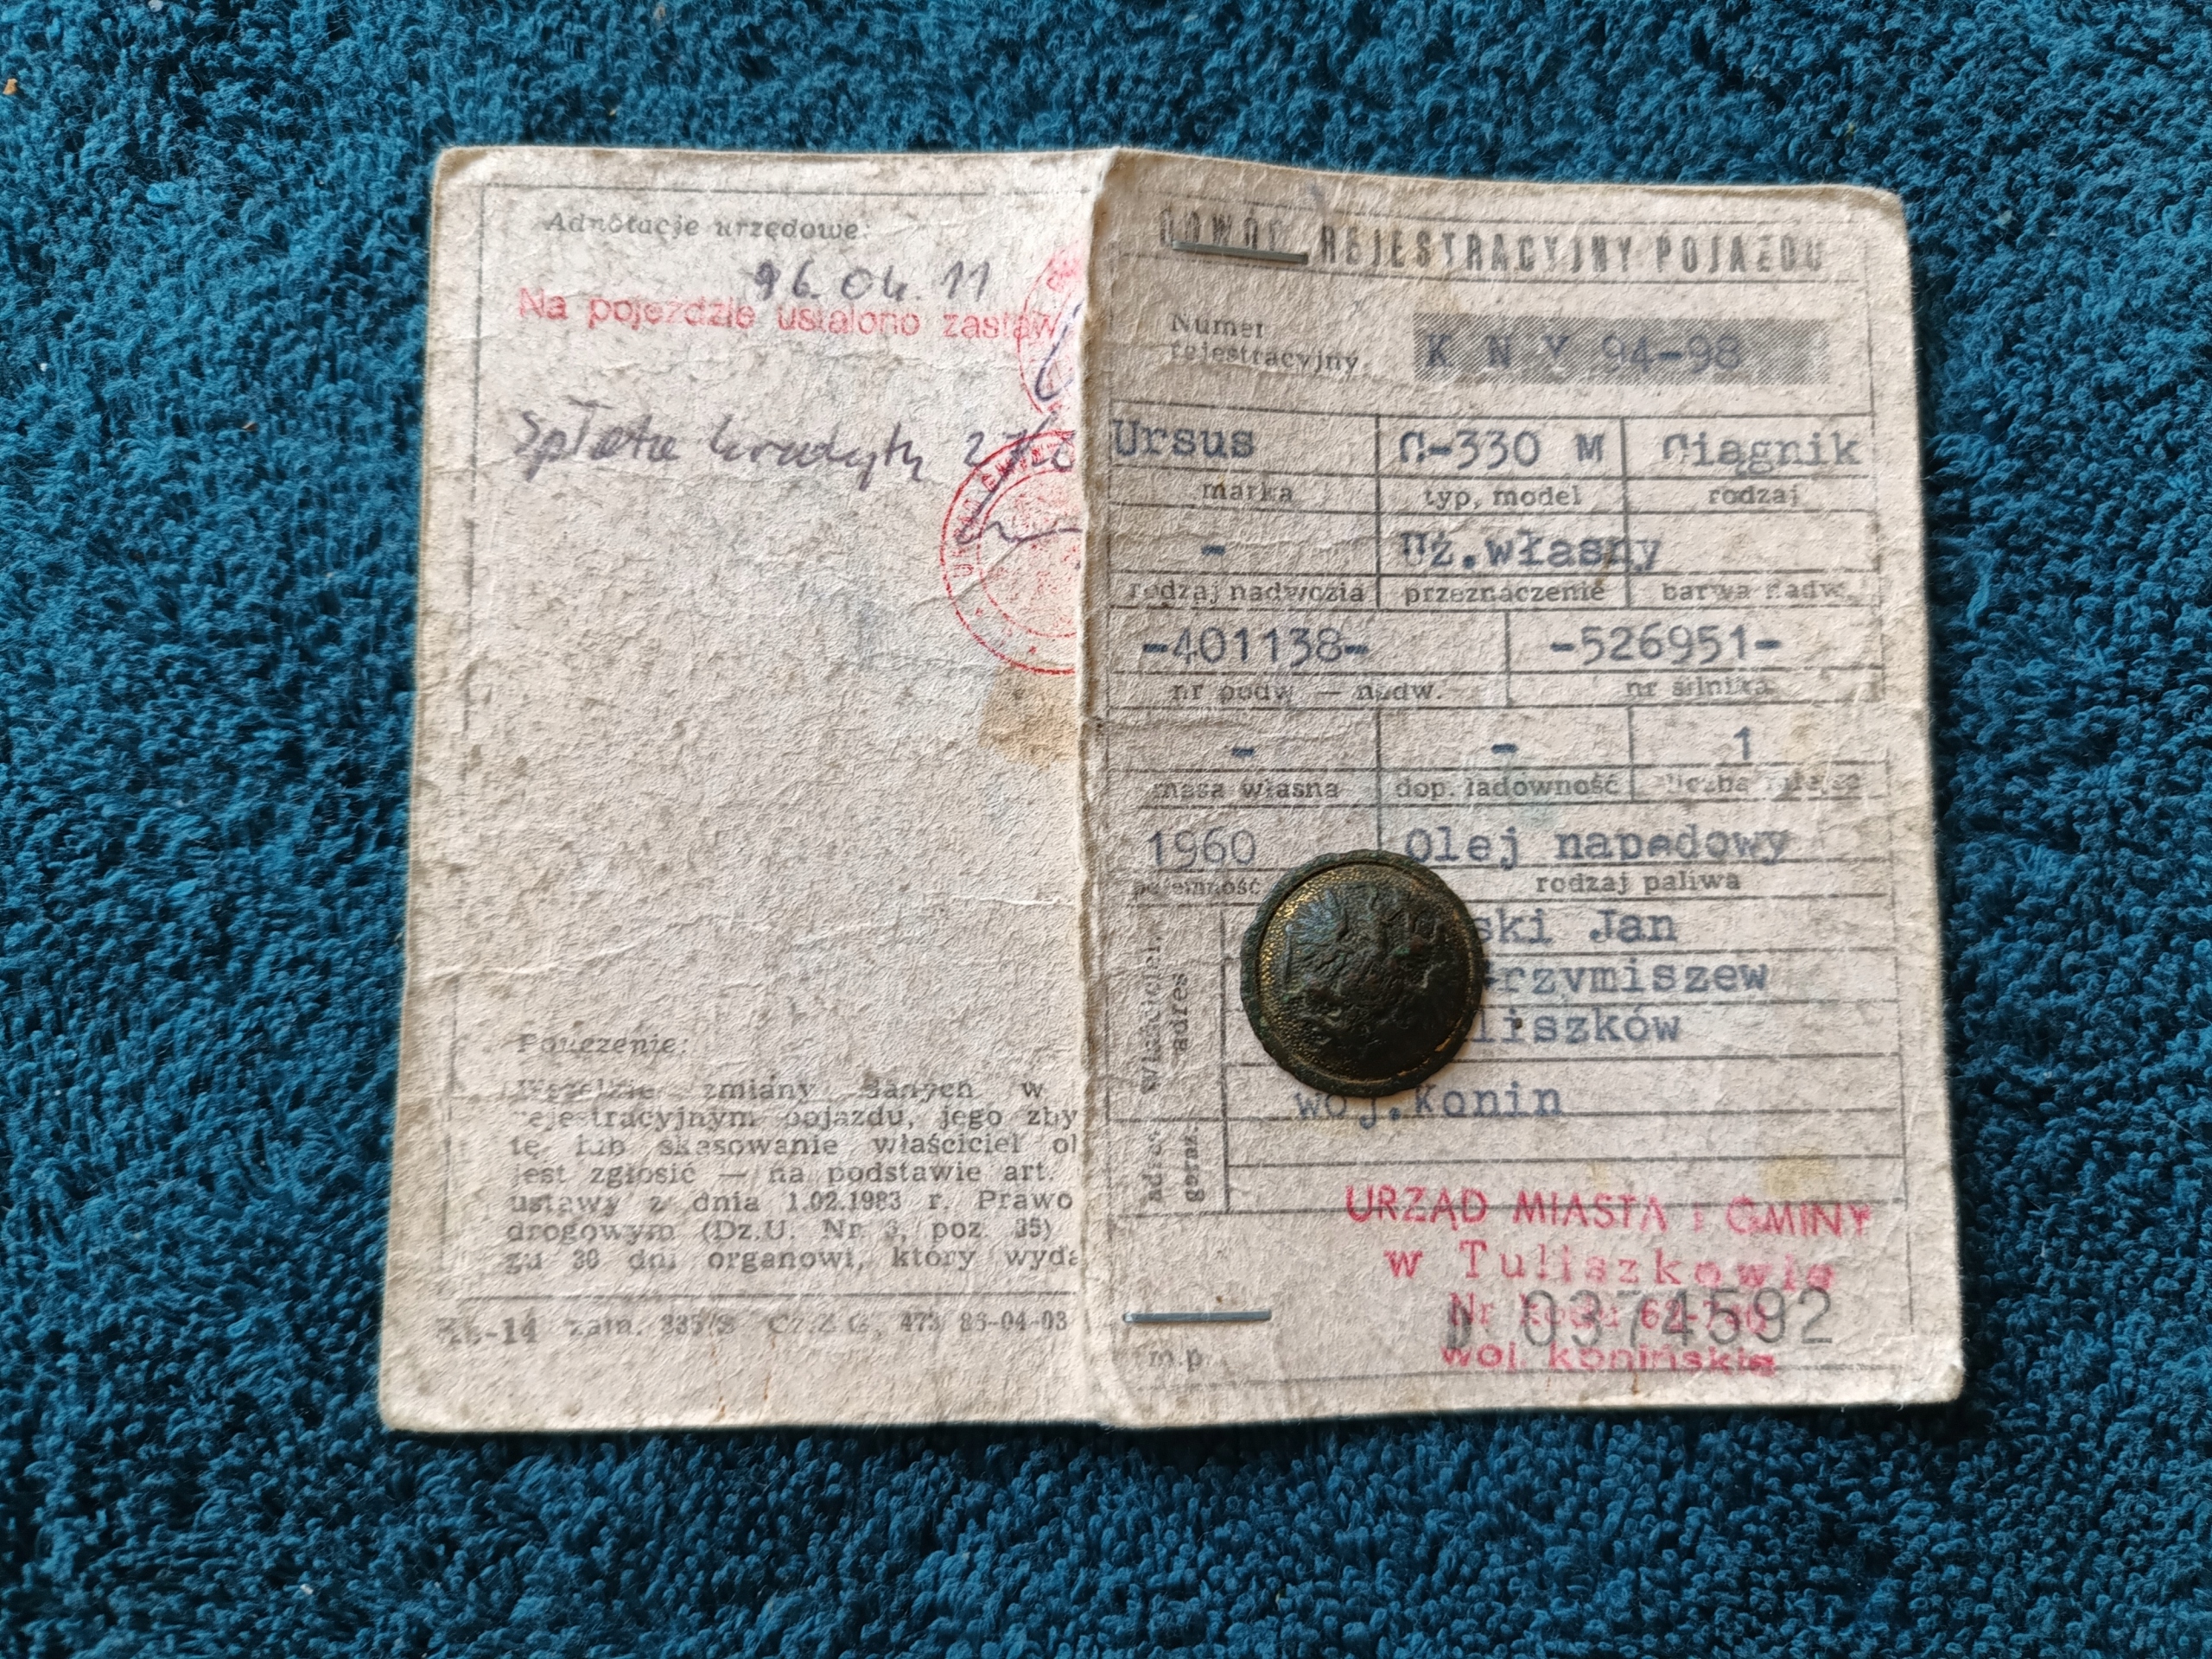 Adnotacje urzędowe:
96.04.11
Na pojeździe ustalono zastaw
Spłata kredytu
Pouczenie:
Wszelkie zmiany danych w
rejestracyjnym pojazdu, jego zby
tę lub skasowanie właściciel ob
jest zgłosić — na podstawie art.
ustawy z dnia 1.02.1983 r. Prawo
drogowym (Dz.U. Nr 6, poz. 35)
gu 30 dni organowi, który wyda
zam. 335/S Cz.Z.G. 473 86-04-03
DOWÓD REJESTRACYJNY POJAZDU
Numer
rejestracyjny
K N Y 94-98
Ursus C-330 M Ciągnik
marka typ, model rodzaj
- Uż.własny
rodzaj nadwozia przeznaczenie barwa nadw.
-401138- -526951-
nr podw — nadw. nr silnika
- - 1
masa własna dop. ładowność liczba miejsc
1960 Olej napędowy
pojemność rodzaj paliwa
właściciel
adres
ski Jan
rzymiszew
liszków
woj.Konin
adres
garaż.
URZĄD MIASTA i GMINY
w Tuliszkowie
Nr kodu 62-740
D 0374592
woj. konińskie
m.p.